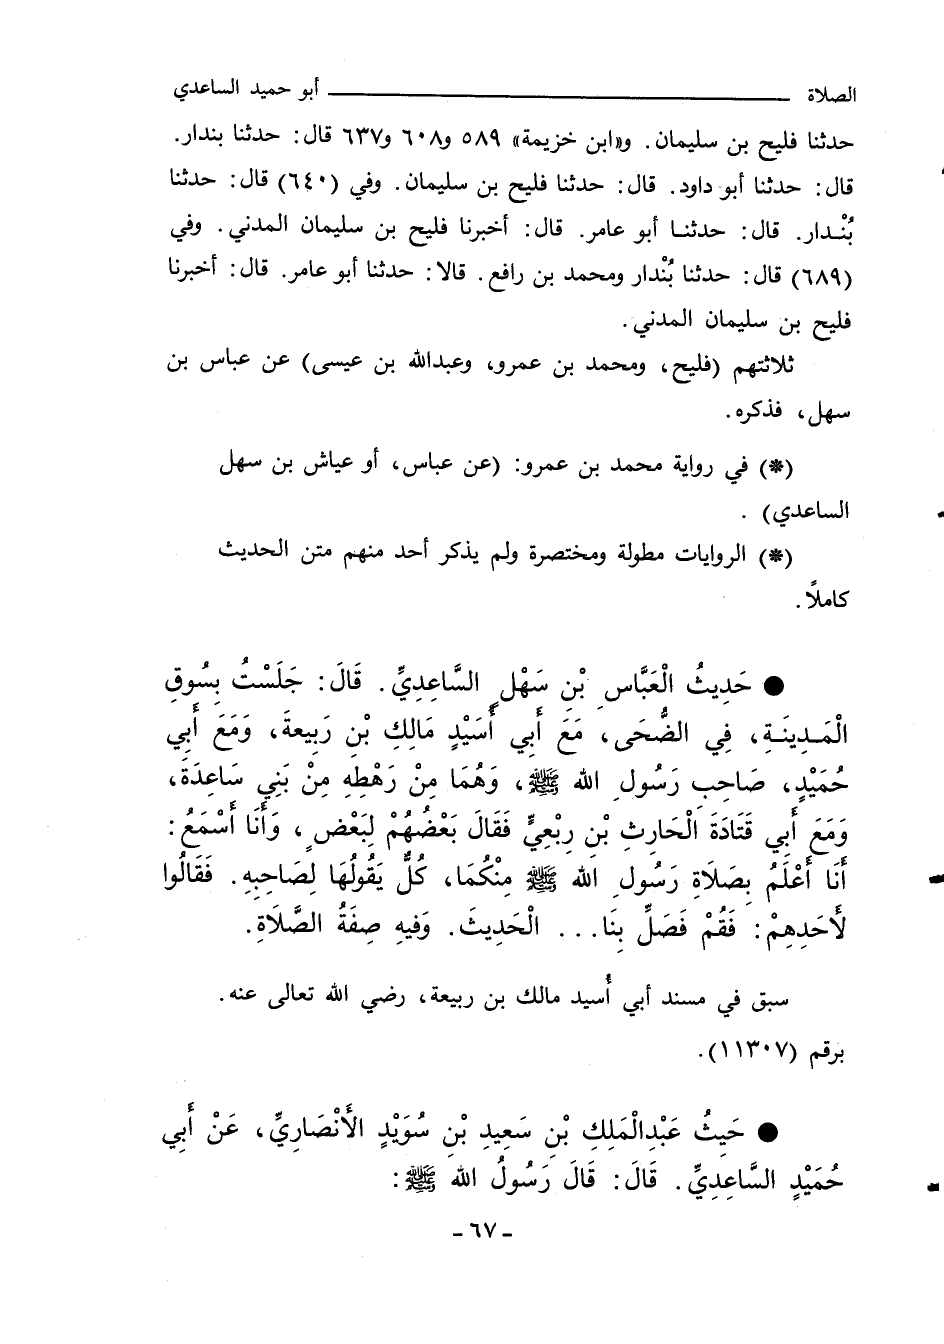 الصلاة ــــــــــ أبو حميد الساعدي
حدثنا فليح بن سليمان. و«ابن خزيمة» ٥٨٩ و٦٠٨ و٦٣٧ قال: حدثنا بندار.
قال: حدثنا أبو داود. قال: حدثنا فليح بن سليمان. وفي (٦٤٠) قال: حدثنا
بُنْدار. قال: حدثنا أبو عامر. قال: أخبرنا فليح بن سليمان المدني. وفي
(٦٨٩) قال: حدثنا بُنْدار ومحمد بن رافع. قالا: حدثنا أبو عامر. قال: أخبرنا
فليح بن سليمان المدني.
ثلاثتهم (فليح، ومحمد بن عمرو، وعبدالله بن عيسى) عن عباس بن
سهل، فذكره.
(*) في رواية محمد بن عمرو: (عن عباس، أو عياش بن سهل
الساعدي) .
(*) الروايات مطولة ومختصرة ولم يذكر أحد منهم متن الحديث
كاملاً.
● حَدِيثُ الْعَبَّاسِ بْنِ سَهْلٍ السَّاعِدِيِّ. قَالَ: جَلَسْتُ بِسُوقِ
الْمَدِينَةِ، فِي الضُّحَى، مَعَ أَبِي أُسَيْدٍ مَالِكِ بْنِ رَبِيعةَ، وَمَعَ أَبِي
حُمَيْدٍ، صَاحِبِ رَسُولِ الله ﷺ، وَهُمَا مِنْ رَهْطِهِ مِنْ بَنِي سَاعِدَةَ،
وَمَعَ أَبِي قَتَادَةَ الْحَارِثِ بْنِ رِبْعِيٍّ فَقَالَ بَعْضُهُمْ لِبَعْضٍ، وَأَنَا أَسْمَعُ:
أَنَا أَعْلَمُ بِصَلَاةِ رَسُولِ الله ﷺ مِنْكُمَا، كُلٌّ يَقُولُهَا لِصَاحِبِهِ. فَقَالُوا
لأَحَدِهِمْ: فَقُمْ فَصَلِّ بِنَا... الْحَدِيثَ. وَفِيهِ صِفَةُ الصَّلَاةِ.
سبق في مسند أبي أُسيد مالك بن ربيعة، رضي الله تعالى عنه.
برقم (١١٣٠٧).
● حَيثُ عَبْدِالْمَلِكِ بْنِ سَعِيدِ بْنِ سُوَيْدٍ الأَنْصَارِيِّ، عَنْ أَبِي
حُمَيْدٍ السَّاعِدِيِّ. قَالَ: قَالَ رَسُولُ الله ﷺ:
- ٦٧ -